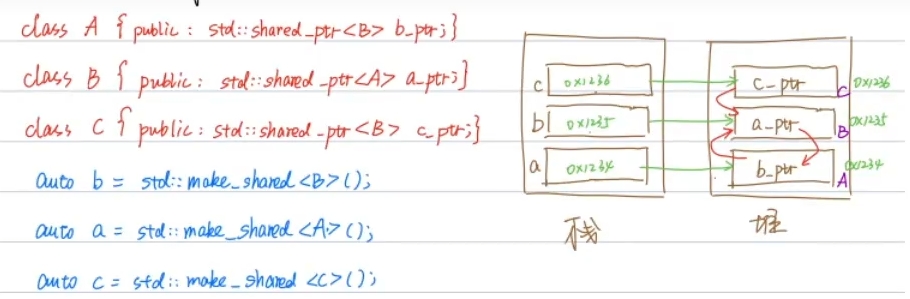 class A { public : std::shared_ptr<B> b_ptr;}
class B { public : std::shared_ptr<A> a_ptr;}
class C { public : std::shared_ptr<B> c_ptr;}
auto b = std::make_shared<B>();
auto a = std::make_shared<A>();
auto c = std::make_shared<C>();
c 0x1236 c_ptr C 0x1236
b 0x1235 a_ptr B 0x1235
a 0x1234 b_ptr A 0x1234
栈 堆